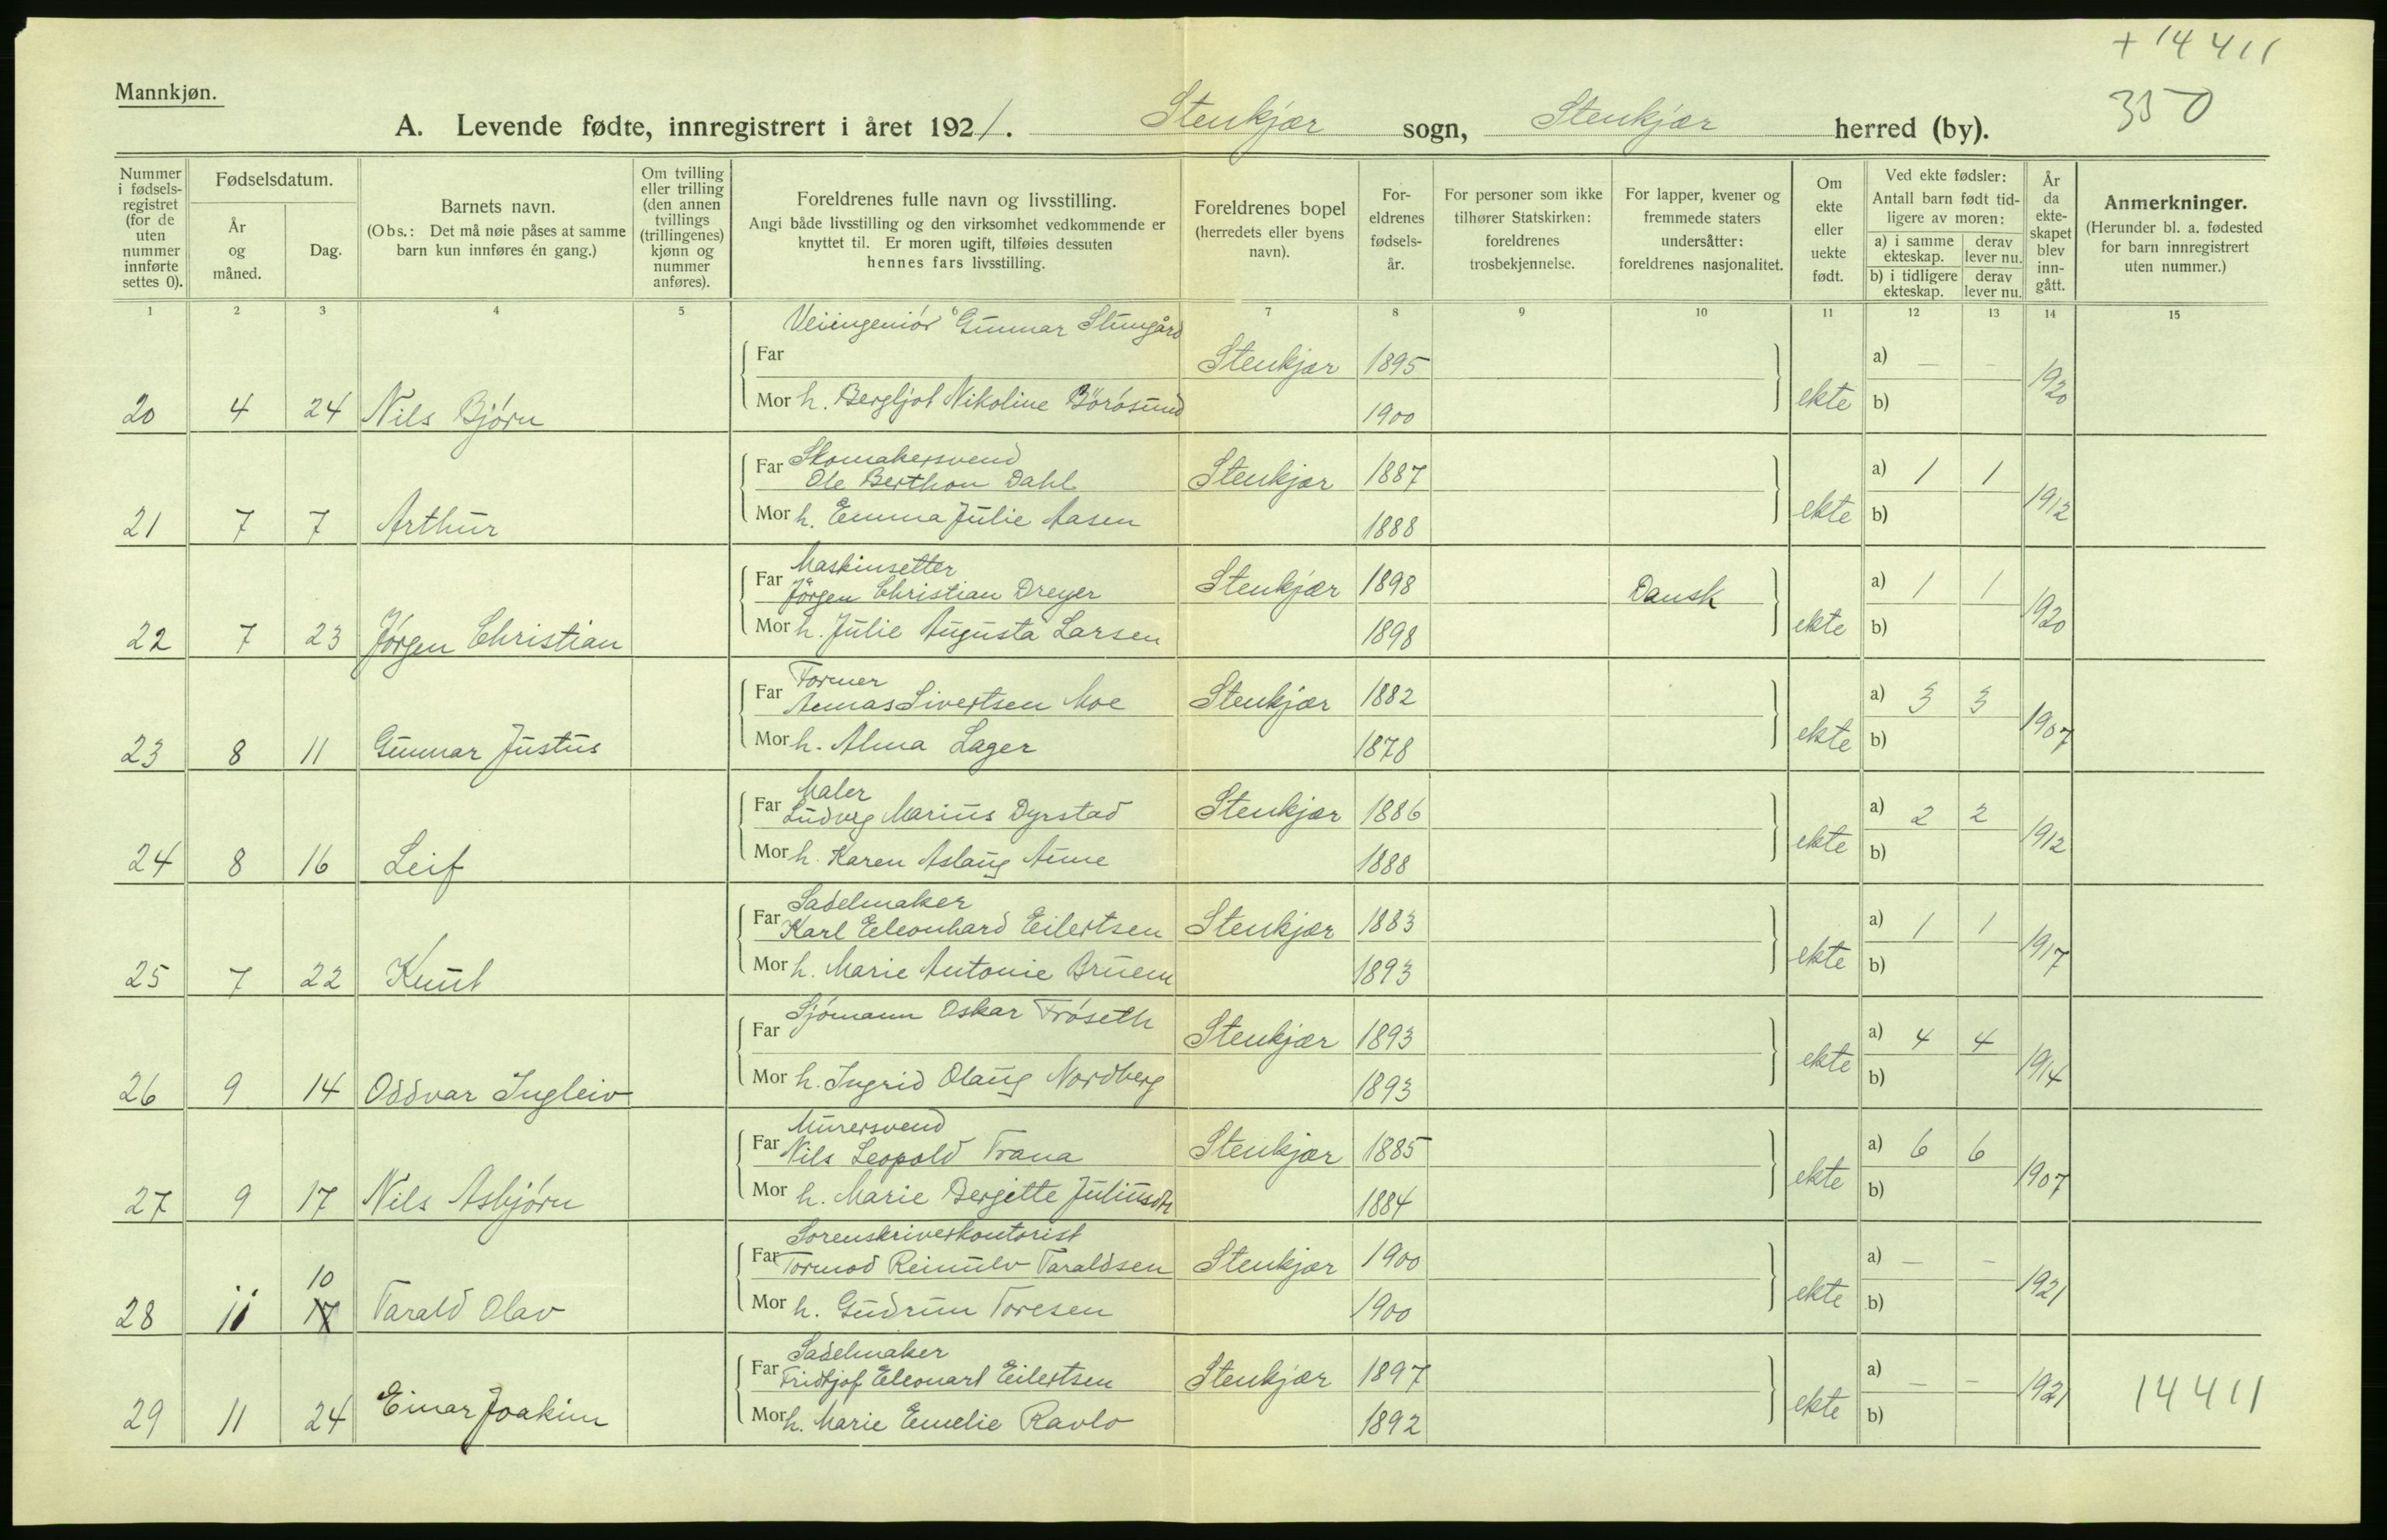 + 14411
350
Mannkjøn.
A. Levende fødte, innregistrert i året 1921. Stenkjær sogn, Stenkjær herred (by).
Nummer i fødselsregistret (for de uten nummer innførte settes 0).
Fødselsdatum.
År og måned.
Dag.
Barnets navn.
(Obs.: Det må nøie påses at samme barn kun innføres én gang.)
Om tvilling eller trilling (den annen tvillings (trillingenes) kjønn og nummer anføres).
Foreldrenes fulle navn og livsstilling.
Angi både livsstilling og den virksomhet vedkommende er knyttet til. Er moren ugift, tilføies dessuten hennes fars livsstilling.
Foreldrenes bopel (herredets eller byens navn).
Foreldrenes fødselsår.
For personer som ikke tilhører Statskirken: foreldrenes trosbekjennelse.
For lapper, kvener og fremmede staters undersåtter: foreldrenes nasjonalitet.
Om ekte eller uekte født.
Ved ekte fødsler: Antall barn født tidligere av moren:
a) i samme ekteskap. derav lever nu.
b) i tidligere ekteskap. derav lever nu.
År da ekteskapet blev inngått.
Anmerkninger.
(Herunder bl. a. fødested for barn innregistrert uten nummer.)
1 2 3 4 5 6 7 8 9 10 11 12 13 14 15
Veiingeniør Gunnar
Far Stenkjær 1895 a) – –
20 4 24 Nils Bjørn Mor h. Bergljot Nikoline Börösund 1900 ekte b) 1920
Skomakersvend
Far Ole Berthon Dahl Stenkjær 1887 a) 1 1
21 7 7 Arthur Mor h. Emma Julie Aasen 1888 ekte b) 1912
Maskinsetter
Far Jörgen Christian Dreyer Stenkjær 1898 Dansk a) 1 1
22 7 23 Jörgen Christian Mor h. Julie Augusta Larsen 1898 ekte b) 1920
Former
Far Sivertsen Moe Stenkjær 1882 a) 3 3
23 8 11 Gunnar Justus Mor h. Alma Lager 1878 ekte b) 1907
Maler
Far Ludvig Marius Dyrstad Stenkjær 1886 a) 2 2
24 8 16 Leif Mor h. Karen Aslaug Aune 1888 ekte b) 1912
Sadelmaker
Far Karl Eleonhard Eilertsen Stenkjær 1883 a) 1 1
25 7 22 Knut Mor h. Marie Antonie Bruem 1893 ekte b) 1917
Sjómann Oskar Fröseth
Far Stenkjær 1893 a) 4 4
26 9 14 Oddvar Ingleiv Mor h. Ingrid Olaug Nordberg 1893 ekte b) 1914
Murersvend
Far Nils Leopold Trana Stenkjær 1885 a) 6 6
27 9 17 Nils Asbjörn Mor h. Marie Bergitte Juliusdt 1884 ekte b) 1907
Sorenskriverkontorist
Far Tormod Reinulv Taraldsen Stenkjær 1900 a) – –
10
28 11 17 Tarald Olav Mor h. Gudrun Toresen 1900 ekte b) 1921
Sadelmaker
Far Fridtjof Eleonart Eilertsen Stenkjær 1897 a) – –
29 11 24 Einar Joakim Mor h. Marie Emelie Ravlo 1892 ekte b) 1921 14411